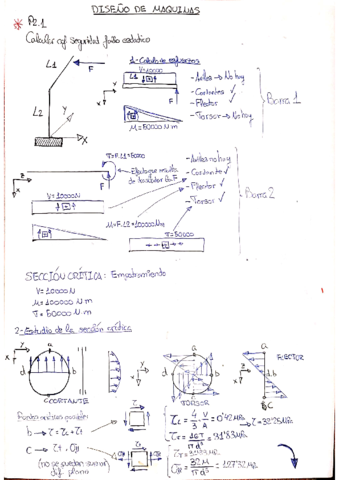 DISEÑO DE MAQUINAS
* P2.1
Calcular cof seguridad fallo estático
L1
F
L2
Y
X
1-Cálculo de esfuerzos
V=10000
F
M=50000 N·m
- Axiles → No hay
- Cortantes ✓
- Flector ✓
- Torsor → No hay
Barra 1
T=F·L1=50000
F
V=10000N
M=F·L2=100000Nm
T=50000
- Axiles no hay
- Cortante ✓
- Flector ✓
- Torsor ✓
Barra 2
SECCIÓN CRÍTICA: Empotramiento
V=10000N
M=100000 N·m
T=50000 N·m
2-Estudio de la sección crítica
a
d
b
c
CORTANTE
TORSOR
FLECTOR
Puntos críticos posibles
b → τL + τT
C → τT, σ
(no se pueden sumar
dif. plano)
τL = 4/3 V/A = 0'42 MPa
τT = 16T/πd³ = 31'83 MPa
→ τ = 32'25 MPa
= 32M/πd³ = 127'32 MPa